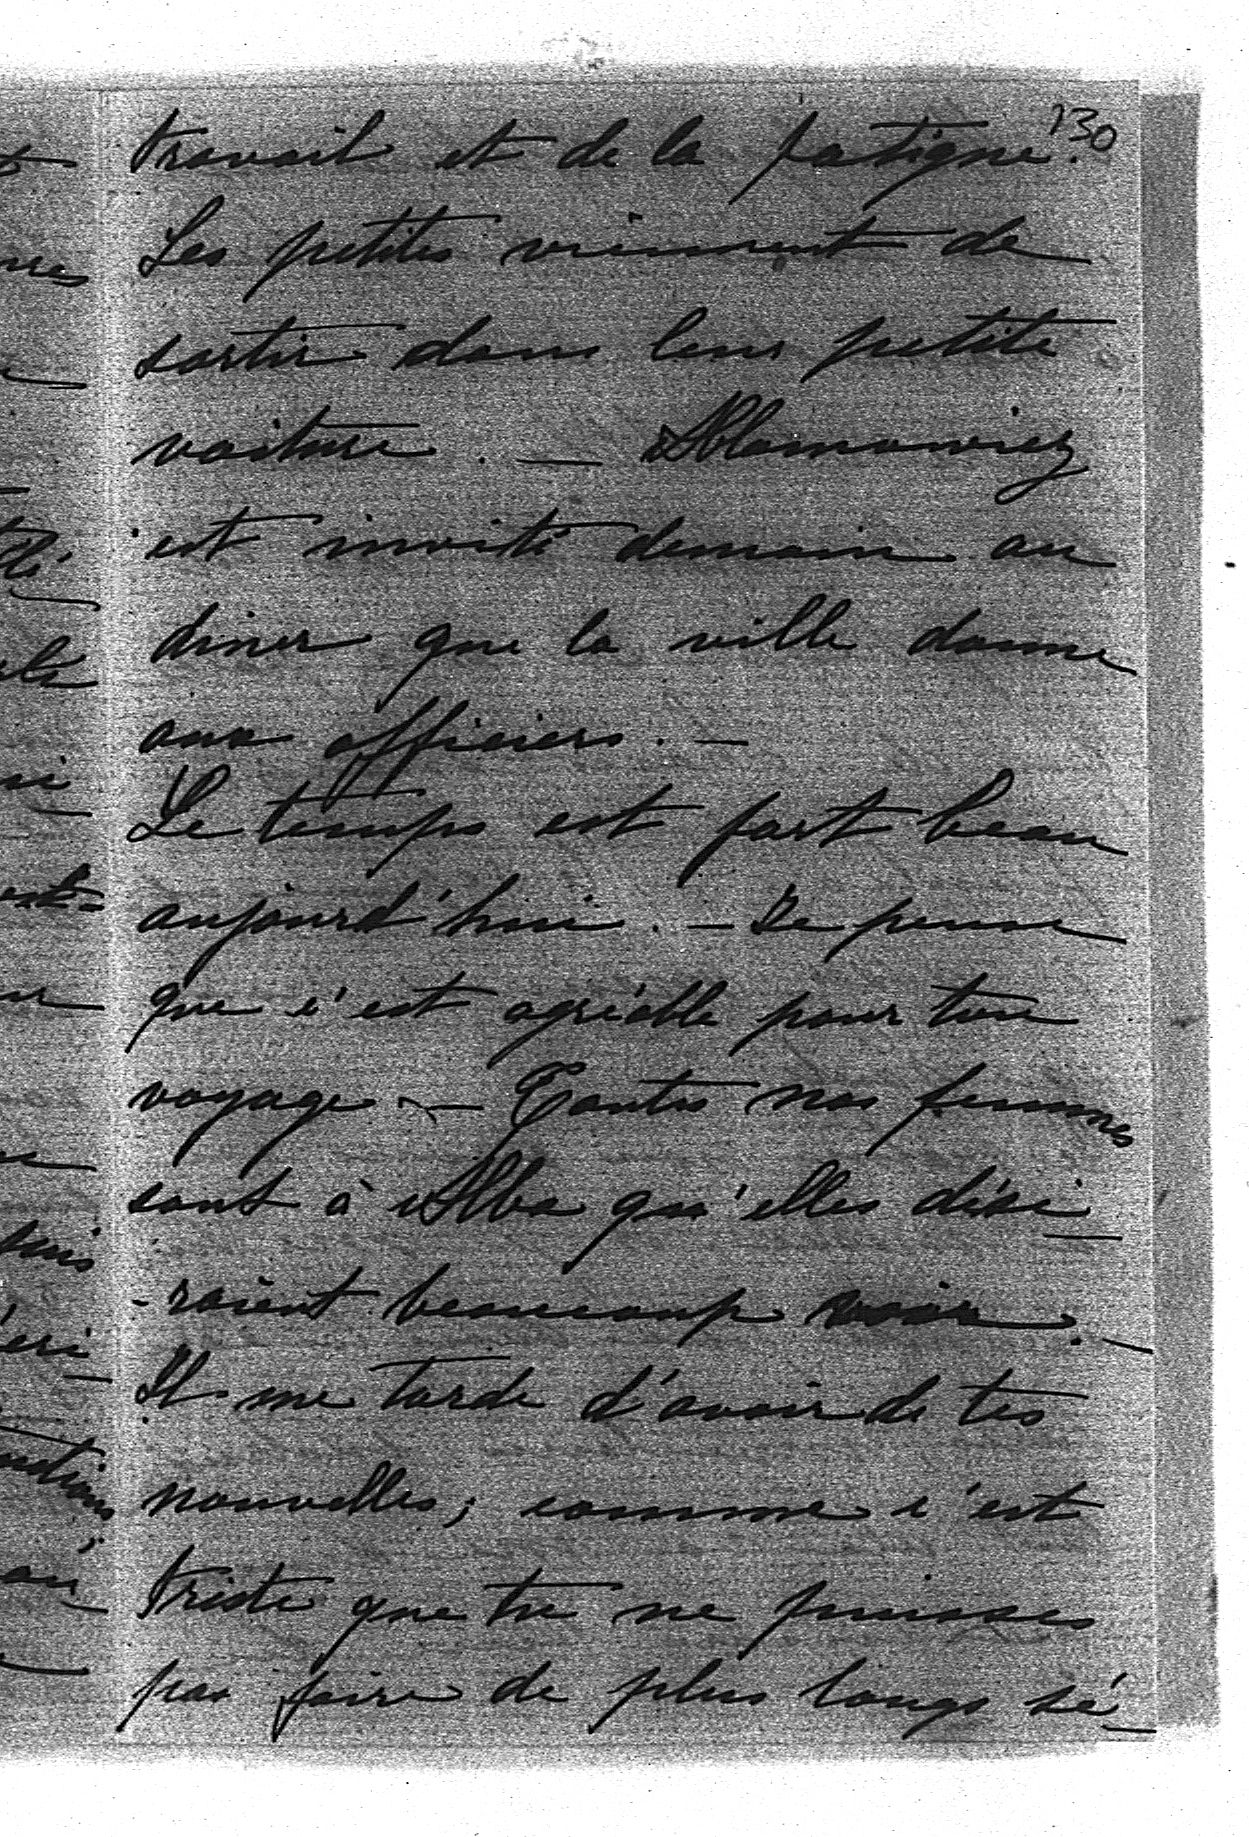 130
travail et de la fatigue.
Les petites viennent de
sortir dans leur petite
voiture. —
est invité demain au
diner que la ville donne
aux officiers. —
Le temps est fort beau
aujourd'hui. — Je pense
que c'est agréable pour ton
voyage — Toutes nos femmes
sont à Alba qu'elles dési
-raient beaucoup voir. —
Il me tarde d'avoir de tes
nouvelles; comme c'est
triste que tu ne puisses
pas faire de plus longs sé-